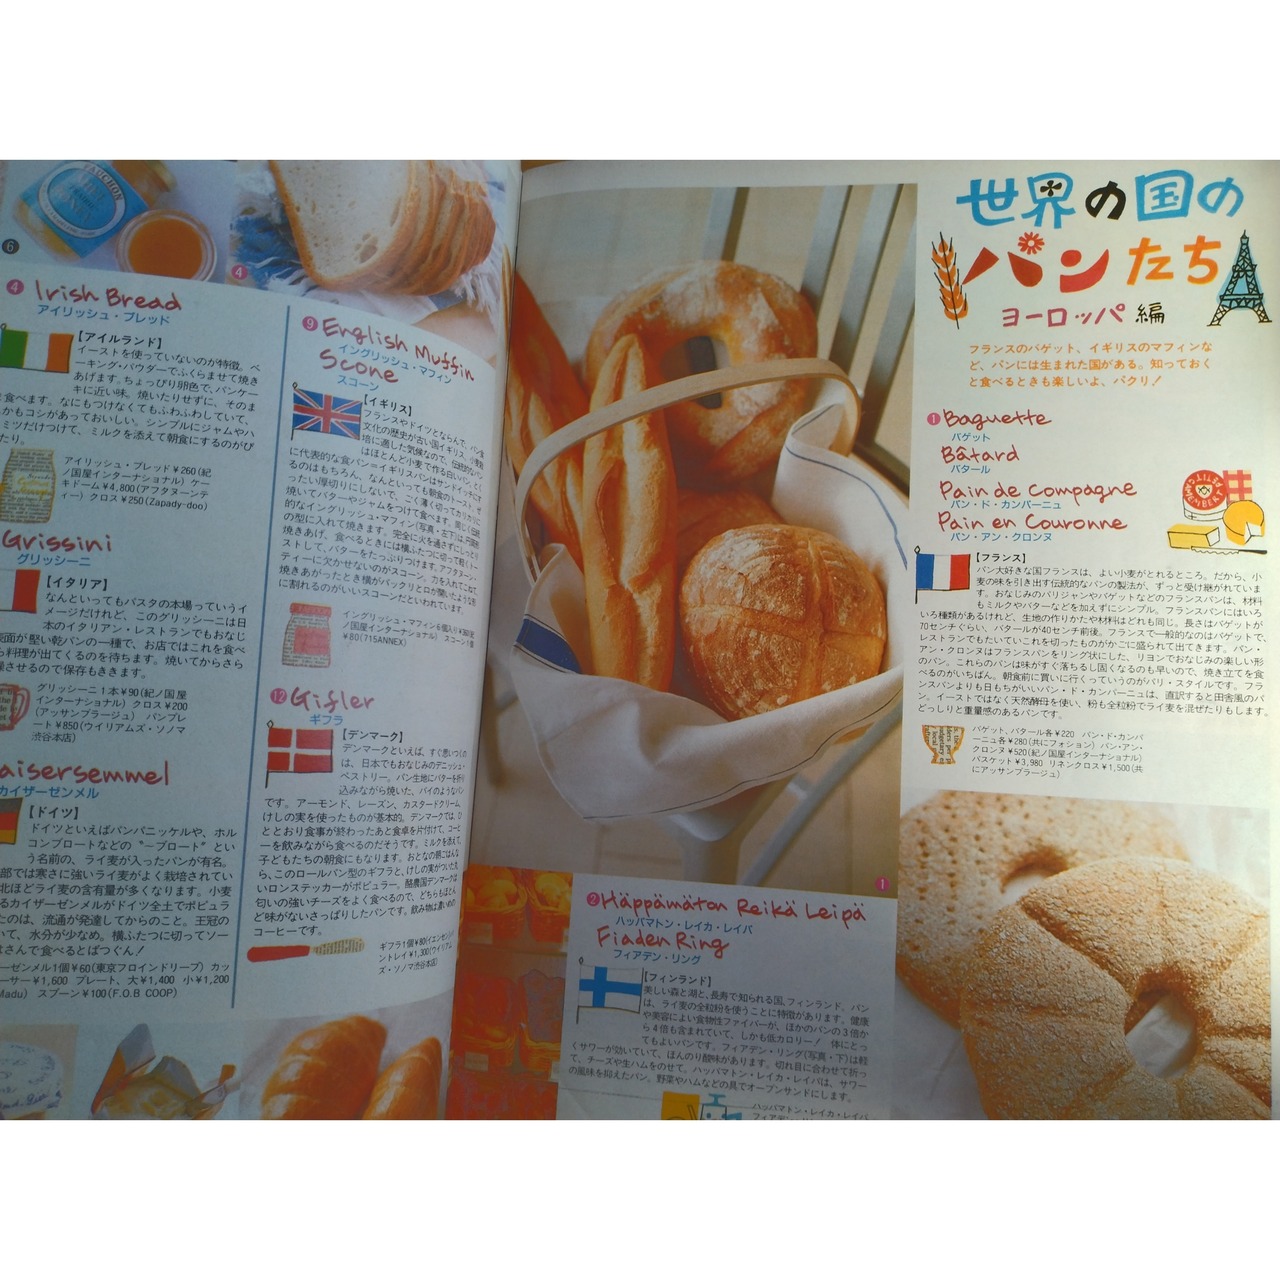 世界の国の
パンたち
ヨーロッパ編
フランスのバゲット、イギリスのマフィンな
ど、パンには生まれた国がある。知っておく
と食べるときも楽しいよ、パクリ!
❶Baguette
バゲット
Bâtard
バタール
Pain de Compagne
パン・ド・カンパーニュ
Pain en Couronne
パン・アン・クロンヌ
【フランス】
パン大好きな国フランスは、よい小麦がとれるところ。だから、小
麦の味を引き出す伝統的なパンの製法が、ずっと受け継がれていま
す。おなじみのパリジャンやバゲットなどのフランスパンは、材料
もミルクやバターなどを加えずにシンプル。フランスパンにはいろ
いろ種類があるけれど、生地の作りかたや材料はどれも同じ。長さはバゲットが
70センチぐらい、バタールが40センチ前後。フランスで一般的なのはバゲットで、
レストランでもたいていこれを切ったものがかごに盛られて出てきます。パン・
アン・クロンヌはフランスパンをリング状にした、リヨンでおなじみの楽しい形
のパン。これらのパンは味がすぐ落ちるし固くなるのも早いので、焼き立てを食
べるのがいちばん。朝食前に買いに行くっていうのがパリ・スタイルです。フラ
ンスパンよりも日もちがいいパン・ド・カンパーニュは、直訳すると田舎風のパ
ン。イーストではなく天然酵母を使い、粉も全粒粉でライ麦を混ぜたりもします。
どっしりと重量感のあるパンです。
バゲット、バタール各¥220 パン・ド・カンパ
ーニュ各¥280(共にフォション) パン・アン・
クロンヌ¥520(紀ノ国屋インターナショナル)
バスケット¥3,980 リネンクロス¥1,500(共
にアッサンブラージュ)
❶
❷Häppämäton Reikä Leipä
ハッパマトン・レイカ・レイパ
Fiaden Ring
フィアデン・リング
【フィンランド】
美しい森と湖と、長寿で知られる国、フィンランド。パン
は、ライ麦の全粒粉を使うことに特徴があります。健康
や美容によい食物性ファイバーが、ほかのパンの3倍か
ら4倍も含まれていて、しかも低カロリー! 体にとっ
てもよいパンです。フィアデン・リング(写真・下)は軽
くサワーが効いていて、ほんのり酸味があります。切れ目に合わせて折っ
て、チーズや生ハムをのせて。ハッパマトン・レイカ・レイパは、サワー
の風味を抑えたパン。野菜やハムなどの具でオープンサンドにします。
ハッパマトン・レイカ・レイパ
❻
❹
❹ Irish Bread
アイリッシュ・ブレッド
【アイルランド】
イーストを使っていないのが特徴。ベ
ーキング・パウダーでふくらませて焼き
あげます。ちょっぴり卵色で、パンケー
キに近い味。焼いたりせずに、そのま
食べます。なにもつけなくてもふわふわしていて、
かもコシがあっておいしい。シンプルにジャムやハ
ミツだけつけて、ミルクを添えて朝食にするのがぴ
たり。
アイリッシュ・ブレッド¥260(紀
ノ国屋インターナショナル) ケー
キドーム¥4,800(アフタヌーンテ
ィー) クロス¥250(Zapady-doo)
Grissini
グリッシーニ
【イタリア】
なんといってもパスタの本場っていうイ
メージだけれど、このグリッシーニは日
本のイタリアン・レストランでもおなじ
表面が堅い乾パンの一種で、お店ではこれを食べ
ら料理が出てくるのを待ちます。焼いてからさら
燥させるので保存もききます。
グリッシーニ1本¥90(紀ノ国屋
インターナショナル) クロス¥200
(アッサンブラージュ) パンプレ
ート¥850(ウイリアムズ・ソノマ
渋谷本店)
aisersemmel
カイザーゼンメル
【ドイツ】
ドイツといえばパンパニッケルや、ホル
コンブロートなどの〝〜ブロート〟とい
う名前の、ライ麦が入ったパンが有名。
部では寒さに強いライ麦がよく栽培されてい
北ほどライ麦の含有量が多くなります。小麦
るカイザーゼンメルがドイツ全土でポピュラ
たのは、流通が発達してからのこと。王冠の
いて、水分が少なめ。横ふたつに切ってソー
はさんで食べるとばつぐん!
ーゼンメル1個¥60(東京フロインドリーブ) カッ
ーサー¥1,600 プレート、大¥1,400 小¥1,200
Madu) スプーン¥100(F.O.B COOP)
❾English Muffin
イングリッシュ・マフィン
Scone
スコーン
【イギリス】
フランスやドイツとならんで、パン食
文化の歴史が古い国イギリス。小麦栽
培に適した気候なので、伝統的なパン
はほとんど小麦で作る白いパン。とく
に代表的な食パン=イギリスパンはサンドイッチにす
るのはもちろん、なんといっても朝食のトースト。ぜ
ったい厚切りにしないで、ごく薄く切ってカリカリに
焼いてバターやジャムをつけて食べます。同じく伝統
的なイングリッシュ・マフィン(写真・左下)は、円筒形
の型に入れて焼きます。完全に火を通さずにしっとり
焼きあげ、食べるときには横ふたつに切って軽くトー
ストして、バターをたっぷりつけます。アフタヌーン・
ティーに欠かせないのがスコーン。力を入れてこねて
焼きあがったとき横がパックリと口が開いたような形
に割れるのがいいスコーンだといわれています。
イングリッシュ・マフィン6個入り¥360(紀
ノ国屋インターナショナル) スコーン1個
¥80(715ANNEX)
⓬Gifler
ギフラ
【デンマーク】
デンマークといえば、すぐ思いつくの
は、日本でもおなじみのデニッシュ・
ペストリー。パン生地にバターを折り
込みながら焼いた、パイのようなパン
です。アーモンド、レーズン、カスタードクリーム、
けしの実を使ったものが基本的。デンマークでは、ひ
ととおり食事が終わったあと食卓を片付けて、コーヒ
ーを飲みながら食べるのだそうです。ミルクを添えて、
子どもたちの朝食にもなります。おとなの朝ごはんな
ら、このロールパン型のギフラと、けしの実がついた丸
いロンステッカーがポピュラー。酪農国デンマークは
匂いの強いチーズをよく食べるので、どちらもほとん
ど味がないさっぱりしたパンです。飲み物は濃いめの
コーヒーです。
ギフラ1個¥80(イエンセン)
ントレイ¥1,300(ウイリアム
ズ・ソノマ渋谷本店)